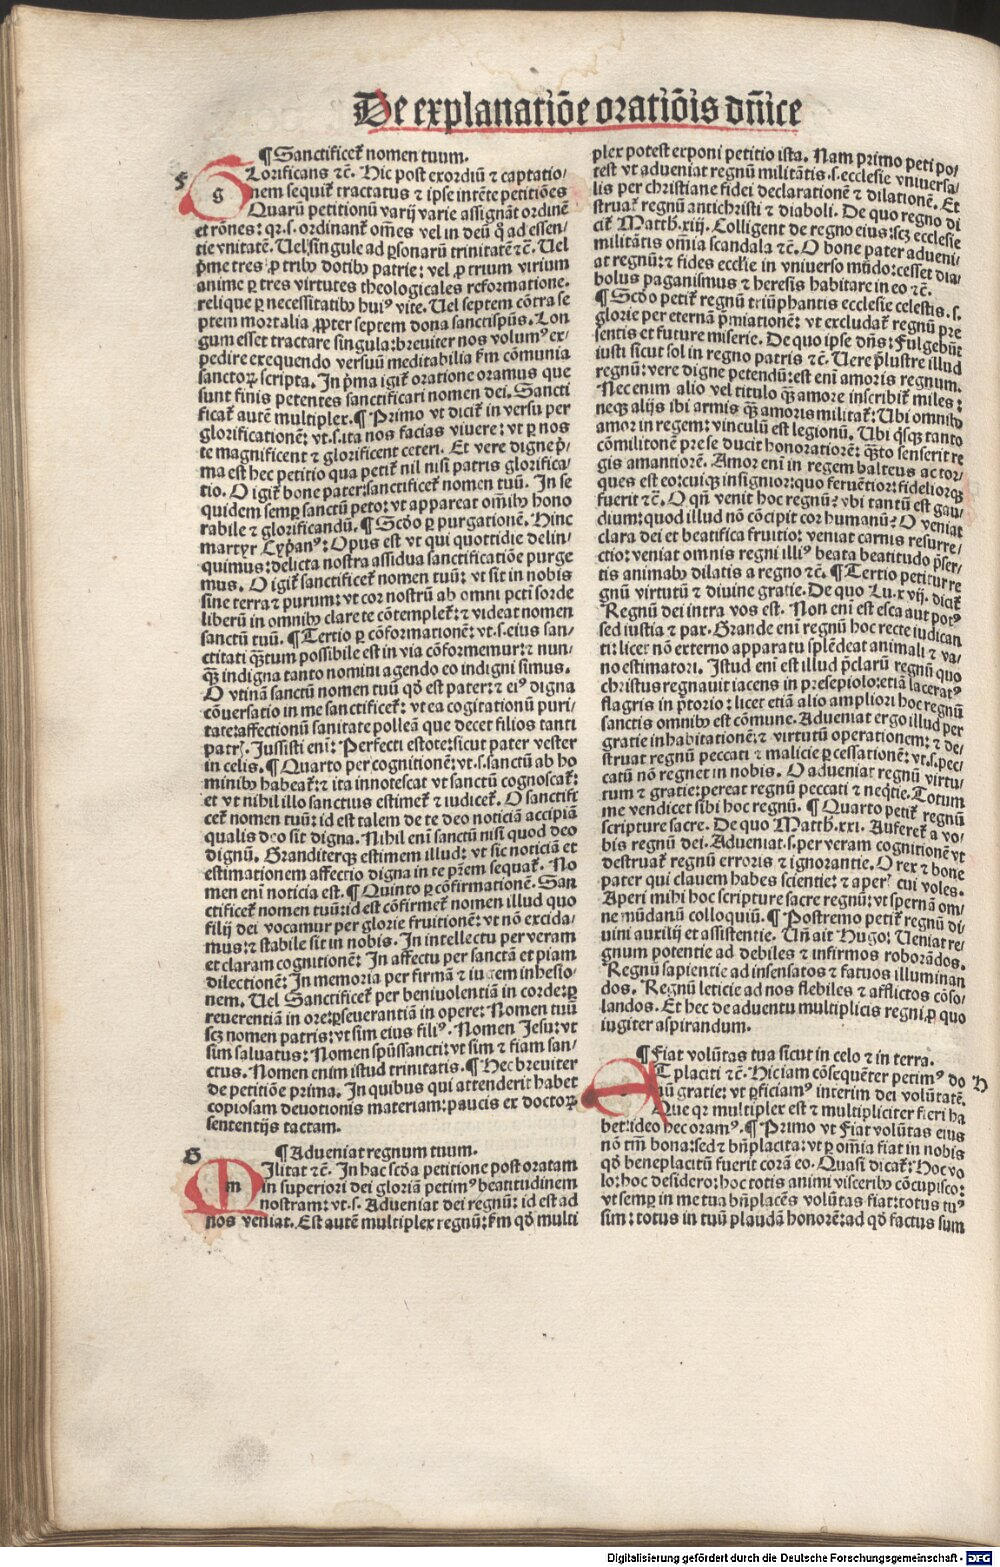 De explanatiõe oratiõis dñice
¶ Sanctificet᷑ nomen tuum.
F
Glorificans ⁊c̃. Hic post exordiũ ⁊ captatio⸗
nem sequit᷑ tractatus ⁊ ipse intẽte petitiões
Quarũ petitionũ varij varie assignãt ordinẽ
et rões: qr̃.s. ordinant᷑ oẽs vel in deũ q̃ ad essen⸗
tie vnitatẽ. Uel singule ad ꝑsonarũ trinitatẽ ⁊c̃. Uel
p̃me tres ꝓ tribꝰ dotibꝰ patrie: vel ꝓ trium virium
anime ꝑ tres virtutes theologicales reformatione.
relique ꝑ necessitatibꝰ huiꝰ vite. Uel septem cõtra se
ptem mortalia ꝓpter septem dona sanctispũs. Lon
gum esset tractare singula: breuiter nos volumꝰ ex⸗
pedire exequendo versuũ meditabilia ẜm cõmunia
sanctoꝝ scripta. In p̃ma igit᷑ oratione oramus que
sunt finis petentes sanctificari nomen dei. Sancti
ficat᷑ autẽ multiplex. ¶ Primo vt dicit᷑ in versu per
glorificationẽ: vt.s. ita nos facias viuere: vt ꝑ nos
te magnificent ⁊ glorificent ceteri. Et vere digne p̃⸗
ma est hec petitio qua petit᷑ nil nisi patris glorifica⸗
tio. O igit᷑ bone pater: sanctificet᷑ nomen tuũ. In se
quidem semꝑ sanctũ peto: vt appareat oĩbꝰ hono
rabile ⁊ glorificandũ. ¶ Scd̃o ꝑ purgationẽ. Hinc
martyr Cyp̃anꝰ: Opus est vt qui quottidie delin⸗
quimus: delicta nostra assidua sanctificatiõe purge
mus. O igit᷑ sanctificet᷑ nomen tuũ: vt sit in nobis
sine terra ⁊ purum: vt cor nostrũ ab omni pctĩ sorde
liberũ in omnibꝰ clare te cõtemplet᷑: ⁊ videat nomen
sanctũ tuũ. ¶ Tertio ꝑ cõformationẽ: vt.s. eius san⸗
ctitati q̃ꝫtum possibile est in via cõformemur: ⁊ nun⸗
q̃ꝫ indigna tanto nomini agendo eo indigni simus.
O vtinã sanctũ nomen tuũ qd̃ est pater: ⁊ eiꝰ digna
cõuersatio in me sanctificet᷑: vt ea cogitationũ puri⸗
tate: affectionũ sanitate polleã que decet filios tanti
patrꝭ. Jussisti enĩ: Perfecti estote: sicut pater vester
in celis. ¶ Quarto per cognitionẽ: vt.s. sanctũ ab ho
minibꝰ habeat᷑: ⁊ ita innotescat vt sanctũ cognoscat᷑:
et vt nihil illo sanctius estimet᷑ ⁊ iudicet᷑. O sanctifi
cet᷑ nomen tuũ: id est talem de te deo noticiã accipiã
qualis deo sit digna. Nihil enĩ sanctũ nisi quod deo
dignũ. Granditerqꝫ estimem illud: vt sic noticiã et
estimationem affectio digna in te p̃rem sequat᷑. No
men enĩ noticia est. ¶ Quinto ꝑ cõfirmationẽ. San
ctificet᷑ nomen tuũ: id est cõfirmet᷑ nomen illud quo
filij dei vocamur per glorie fruitionẽ: vt nõ excida⸗
mus: ⁊ stabile sit in nobis. In intellectu per veram
et claram cognitionẽ: In affectu per sanctã et piam
dilectionẽ: In memoria per firmã ⁊ iugem inhesio⸗
nem. Uel Sanctificet᷑ per beniuolentiã in corde: ꝑ
reuerentiã in ore: ꝑseuerantiã in opere: Nomen tuũ
scꝫ nomen patris: vt sim eius filiꝰ. Nomen Jesu: vt
sim saluatus: Nomen spũssancti: vt sim ⁊ fiam san⸗
ctus. Nomen enim istud trinitatis. ¶ Hec breuiter
de petitiõe prima. In quibus qui attenderit habet
copiosam deuotionis materiam: paucis ex doctoꝝ
sententijs tactam.
G
¶ Adueniat regnum tuum.
Militat ⁊c̃. In hac scd̃a petitione post oratam
in superiori dei gloriã petimꝰ beatitudinem
nostram: vt.s. Adueniat dei regnũ: id est ad
nos veniat. Est autẽ multiplex regnũ: ẜm qd̃ multi
plex potest exponi petitio ista. Nam primo peti po⸗
test vt adueniat regnũ militãtis.s. ecclesie vniuersa⸗
lis per christiane fidei declarationẽ ⁊ dilationẽ. Et
struat᷑ regnũ antichristi ⁊ diaboli. De quo regno di
cit᷑ Matth.xiij. Colligent de regno eius: scꝫ ecclesie
militãtis oĩa scandala ⁊c̃. O bone pater adueni⸗
at regnũ: ⁊ fides ecclie in vniuerso mũdo: cesset dia⸗
bolus paganismus ⁊ heresis habitare in eo ⁊c̃.
¶ Scd̃o petit᷑ regnũ triũphantis ecclesie celestis.s.
glorie per eternã p̃miationẽ: vt excludat᷑ regnũ pre
sentis et future miserie. De quo ipse dñs: Fulgebũt
iusti sicut sol in regno patris ⁊c̃. Uere p̃lustre illud
regnũ: vere digne petendũ: est enĩ amoris regnum.
Nec enim alio vel titulo q̃ꝫ amore inscribit᷑ miles:
neqꝫ alijs ibi armis q̃ꝫ amoris militat᷑: Ubi omnibꝰ
amor in regem: vinculũ est legionũ. Ubi q̃sqꝫ tanto
cõmilitonẽ pre se ducit honoratiorẽ: q̃ꝫto senserit re
gis amantiorẽ. Amor enĩ in regem balteus ac tor⸗
ques est eo: cuiqꝫ insignior: quo feruẽtior: fideliorqꝫ
fuerit ⁊c̃. O qñ venit hoc regnũ: vbi tantũ est gau⸗
dium: quod illud nõ cõcipit cor humanũ? O veniat
clara dei et beatifica fruitio: veniat carnis resurre⸗
ctio: veniat omnis regni illiꝰ beata beatitudo p̃ser⸗
tis animabꝰ dilatis a regno ⁊c̃. ¶ Tertio petitur re
gnũ virtutũ ⁊ diuine gratie. De quo Lu.xvij. dicit᷑
Regnũ dei intra vos est. Non enĩ est esca aut potꝰ
sed iustia ⁊ pax. Grande enĩ regnũ hoc recte iudican
ti: licet nõ externo apparatu splẽdeat animali ⁊ va⸗
no estimatori. Istud enĩ est illud p̃clarũ regnũ quo
christus regnauit iacens in presepiolo: etiã laceratꝰ
flagris in p̃torio: licet etiã alio ampliori hoc regnũ
sanctis omnibꝰ est cõmune. Adueniat ergo illud per
gratie inhabitationẽ: ⁊ virtutũ operationem: ⁊ de⸗
struat regnũ peccati ⁊ malicie ꝑ cessationẽ: vt.s. pec⸗
catũ nõ regnet in nobis. O adueniat regnũ virtu⸗
tum ⁊ gratie: pereat regnũ peccati ⁊ neq̃tie. Totum
me vendicet sibi hoc regnũ. ¶ Quarto petit᷑ regnũ
scripture sacre. De quo Matth.xxi. Auferet᷑ a vo⸗
bis regnũ dei. Adueniat.s. per veram cognitionẽ vt
destruat᷑ regnũ erroris ⁊ ignorantie. O rex ⁊ bone
pater qui clauem habes scientie: ⁊ aperꝭ cui voles.
Aperi mihi hoc scripture sacre regnũ: vt spernã om⸗
ne mũdanũ colloquiũ. ¶ Postremo petit᷑ regnũ di⸗
uini auxilij et assistentie. Uñ ait Hugo: Ueniat re⸗
gnum potentie ad debiles ⁊ infirmos roborãdos.
Regnũ sapientie ad insensatos ⁊ fatuos illuminan
dos. Regnũ leticie ad nos flebiles ⁊ afflictos cõso⸗
landos. Et hec de aduentu multiplicis regni, ꝓ quo
iugiter aspirandum.
¶ Fiat volũtas tua sicut in celo ⁊ in terra.
H
AT placiti ⁊c̃. Hic iam cõsequẽter petimꝰ do
nũ gratie: vt ꝑficiamꝰ interim dei volũtatẽ.
Que qr̃ multiplex est ⁊ multipliciter fieri ha
bet: ideo hec oramꝰ. ¶ Primo vt Fiat volũtas eius
nõ tm̃ bona: sed ⁊ bñplacita: vt ꝑ oĩa fiat in nobis
qd̃ beneplacitũ fuerit corã eo. Quasi dicat᷑: Hoc vo
lo: hoc desidero: hoc totis animi visceribꝰ cõcupisco:
vt semꝑ in me tua bñplacẽs volũtas fiat: totus tuꝰ
sim: totus in tuũ plaudã honorẽ: ad qd̃ factus sum
Digitalisierung gefördert durch die Deutsche Forschungsgemeinschaft - DFG